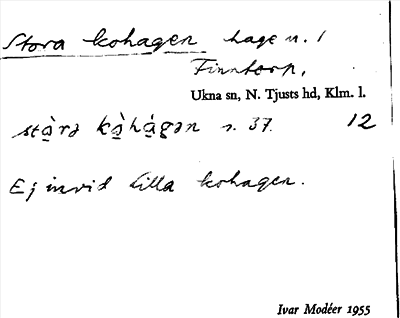 Stora kohagen hage n. 1
Finntorp,
Ukna sn, N. Tjusts hd, Klm. l.
stą̀rə ką̀hą́gən s. 37. 12
Ej invid Lilla kohagen.
Ivar Modéer 1955